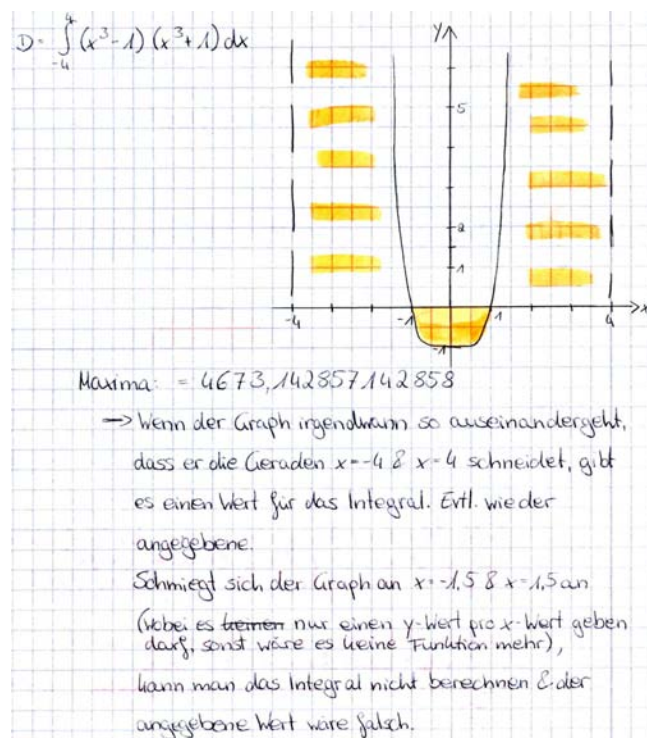 D = ∫₋₄⁴ (x³-1) (x³+1) dx
y
5
2
1
-4 -1 1 4 x
-1
Maxima: = 4673,142857142858
→ Wenn der Graph irgendwann so auseinandergeht,
dass er die Geraden x=-4 & x=4 schneidet, gibt
es einen Wert für das Integral. Evtl. wie der
angegebene.
Schmiegt sich der Graph an x=-1,5 & x=1,5 an
(wobei es keinen nur einen y-Wert pro x-Wert geben
darf, sonst wäre es keine Funktion mehr),
kann man das Integral nicht berechnen & der
angegebene Wert wäre falsch.